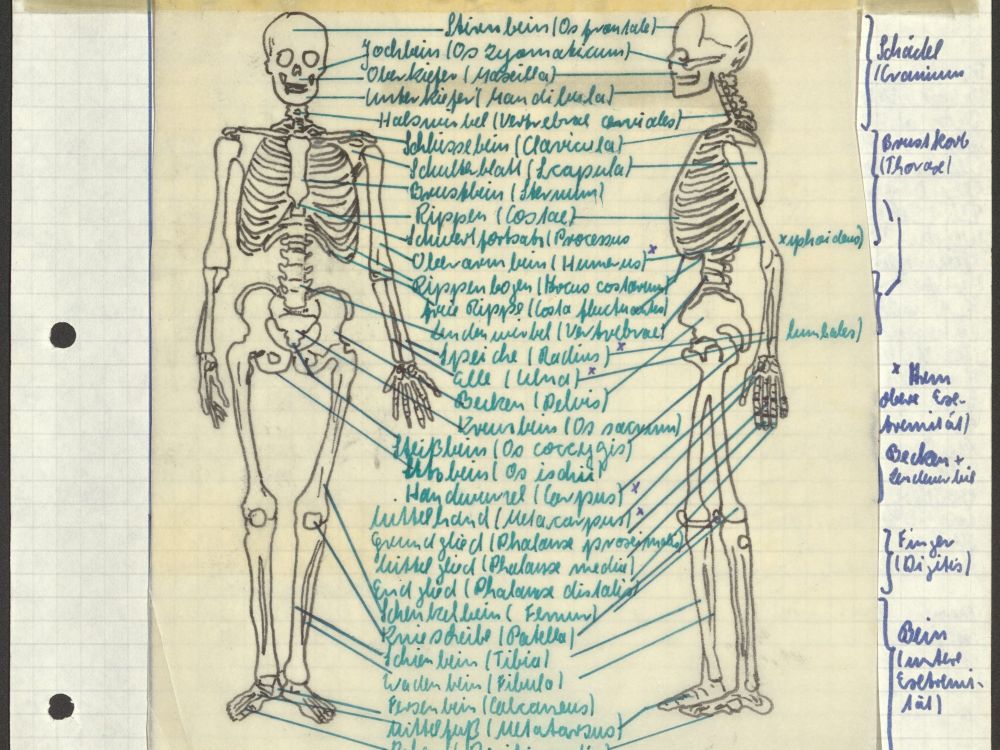 Stirnbein (Os frontale)
Jochbein (Os Zygomaticum)
Oberkiefer (Maxilla)
Unterkiefer (Mandibula)
Halswirbel (Vertebrae cervicales)
Schlüsselbein (Clavicula)
Schulterblatt (Scapula)
Brustbein (Sternum)
Rippen (Costae)
Schwertfortsatz (Processus
xyphoideus)
Oberarmbein (Humerus) x
Rippenbogen (Arcus costarum)
freie Rippe (Costa fluctuantes)
Lendenwirbel (Vertebrae
lumbales)
Speiche (Radius) x
Elle (Ulna) x
Becken (Pelvis)
Kreuzbein (Os sacrum)
Steißbein (Os coccygis)
Sitzbein (Os ischii)
Handwurzel (Carpus) x
Mittelhand (Metacarpus) x
Grundglied (Phalanx proximalis)
Mittelglied (Phalanx media)
Endglied (Phalanx distalis)
Schenkelbein (Femur)
Kniescheibe (Patella)
Schienbein (Tibia)
Wadenbein (Fibula)
Fersenbein (Calcaneus)
Mittelfuß (Metatarsus)
Schädel
(Cranium
Brustkorb
(Thorax)
x
obere Ex-
tremität)
Becken +
Lendenwirbel
Finger
(Digitis)
Bein
(untere
Extremi-
tät)